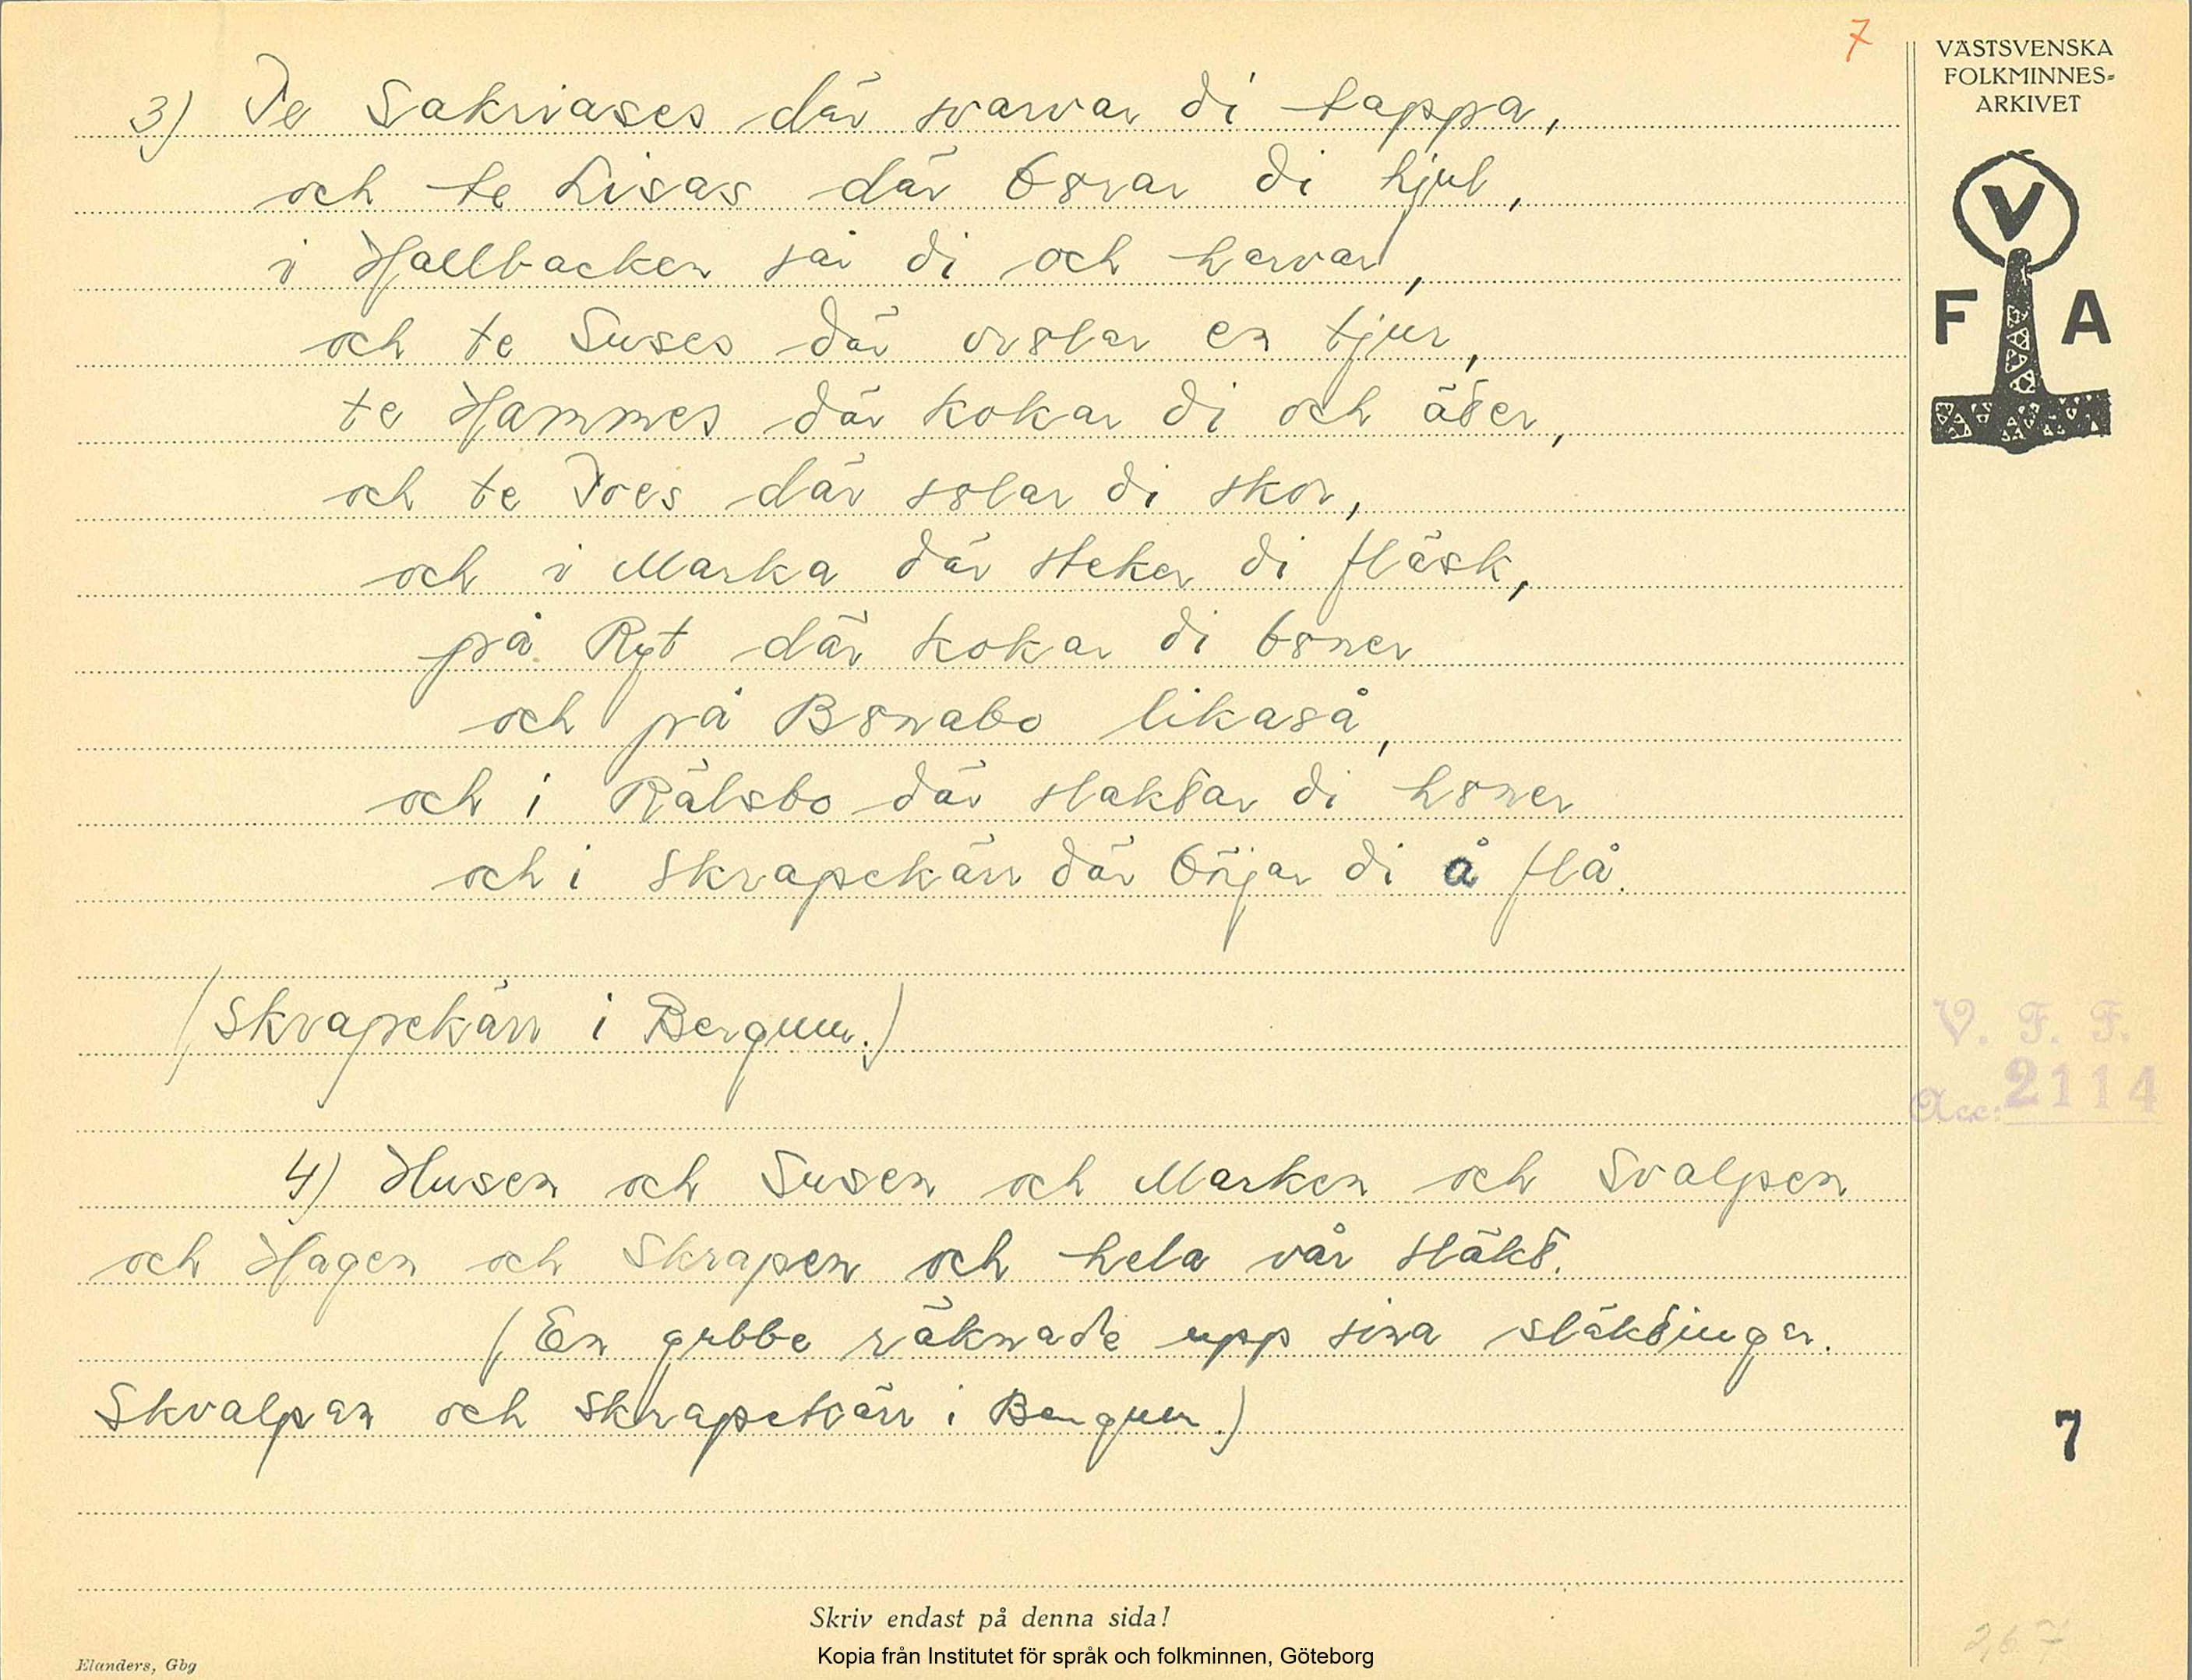 7
VÄSTSVENSKA
FOLKMINNES-
ARKIVET
V
F A
3) Te Sakriases där svarvar di tappa,
och te Lisas där borar di hjul,
i Hallbacken sår di och harvar,
och te Suses där vrålar en tjur,
te Hammes där kokar di och äter,
och te Ives där solar di skor,
och i Marka där steker di fläsk,
på Ryt där kokar di böner
och på Bönabo likaså,
och i Rälsbo där slaktar di höner
och i Skrapekärr där börjar di å flå.
(Skrapekärr i Bergum.)
V. F. F.
Acc: 2114
4) Husen och Susen och Marken och Svalpen
och Hagen och Skrapen och hela vår släkt.
(En gubbe räknade upp sina släktingar.
Skvalpen och Skrapekärr i Bergum.)
7
Skriv endast på denna sida!
Kopia från Institutet för språk och folkminnen, Göteborg
Elanders, Gbg